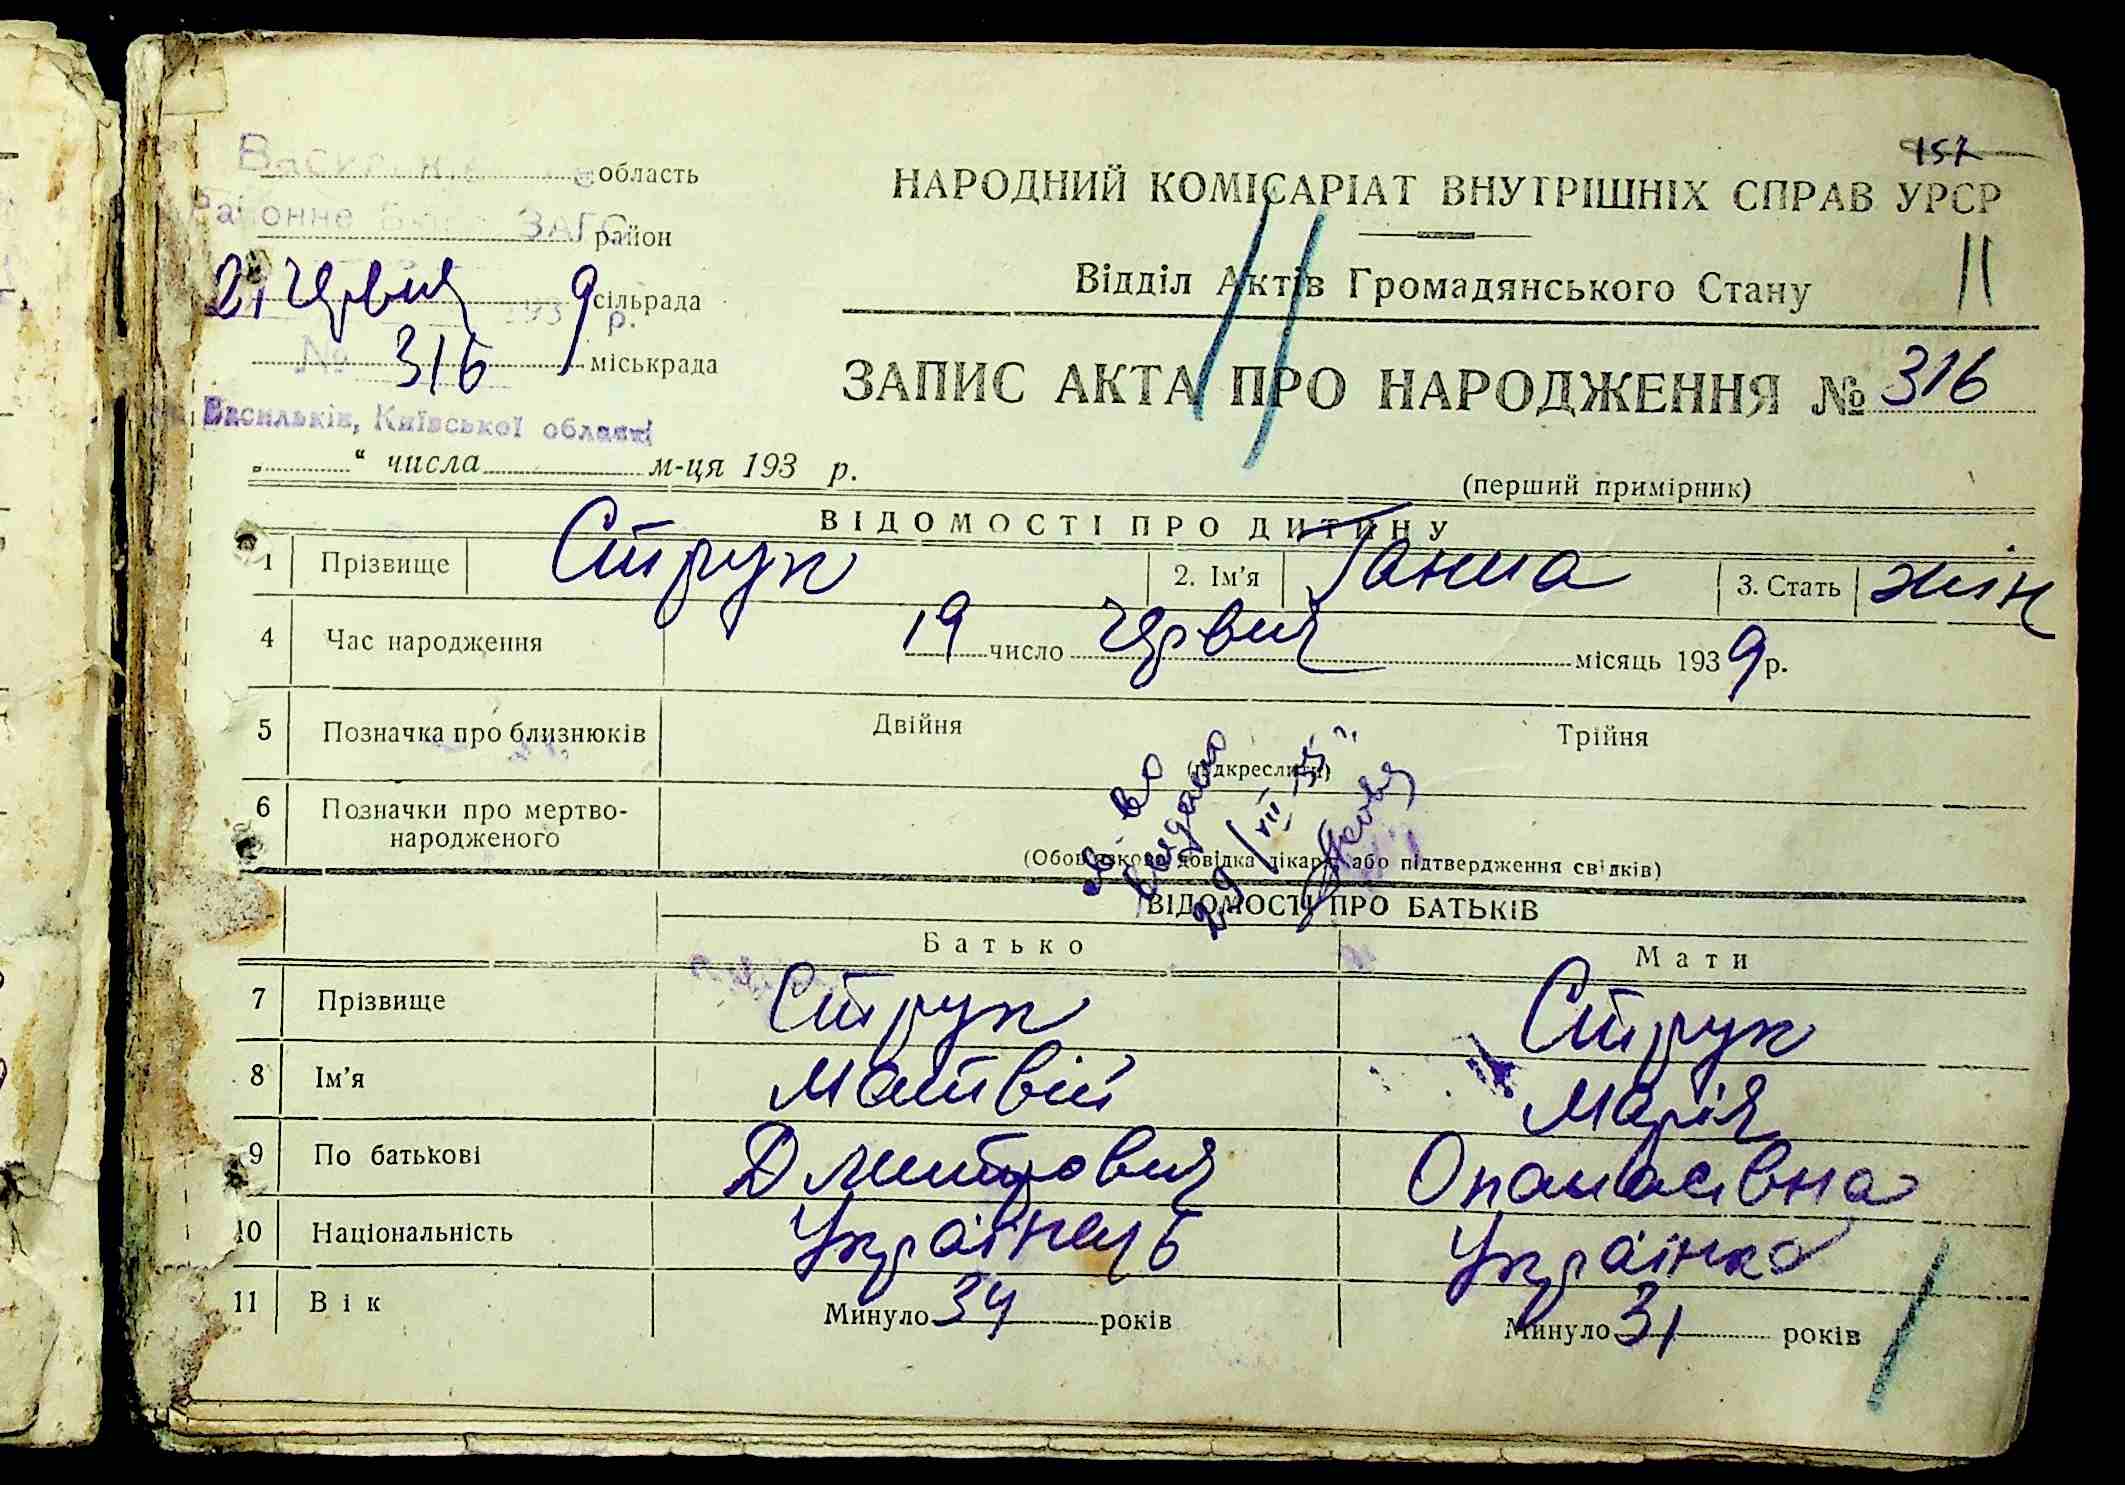 157
Васильківс область
Районне Бюро ЗАГС район
21 червня 1939 р. сільрада
№ 316 міськрада
Васильків, Київської області
„ “ числа м-ця 193 р.
НАРОДНИЙ КОМІСАРІАТ ВНУТРІШНІХ СПРАВ УРСР
Відділ Актів Громадянського Стану
11
ЗАПИС АКТА ПРО НАРОДЖЕННЯ № 316
(перший примірник)
ВІДОМОСТІ ПРО ДИТИНУ
1 Прізвище Струк 2. Ім'я Ганна 3. Стать жін
4 Час народження 19 число червня місяць 1939 р.
5 Позначка про близнюків Двійня Трійня
(підкреслити)
6 Позначки про мертво-
народженого
(Обов'язкова довідка лікаря або підтвердження свідків)
св-во
видано
29/VII
ВІДОМОСТІ ПРО БАТЬКІВ
Батько Мати
7 Прізвище Струк Струк
8 Ім'я Матвій Марія
9 По батькові Дмитрович Опанасівна
10 Національність Українець Українка
11 Вік Минуло 34 років Минуло 31 років